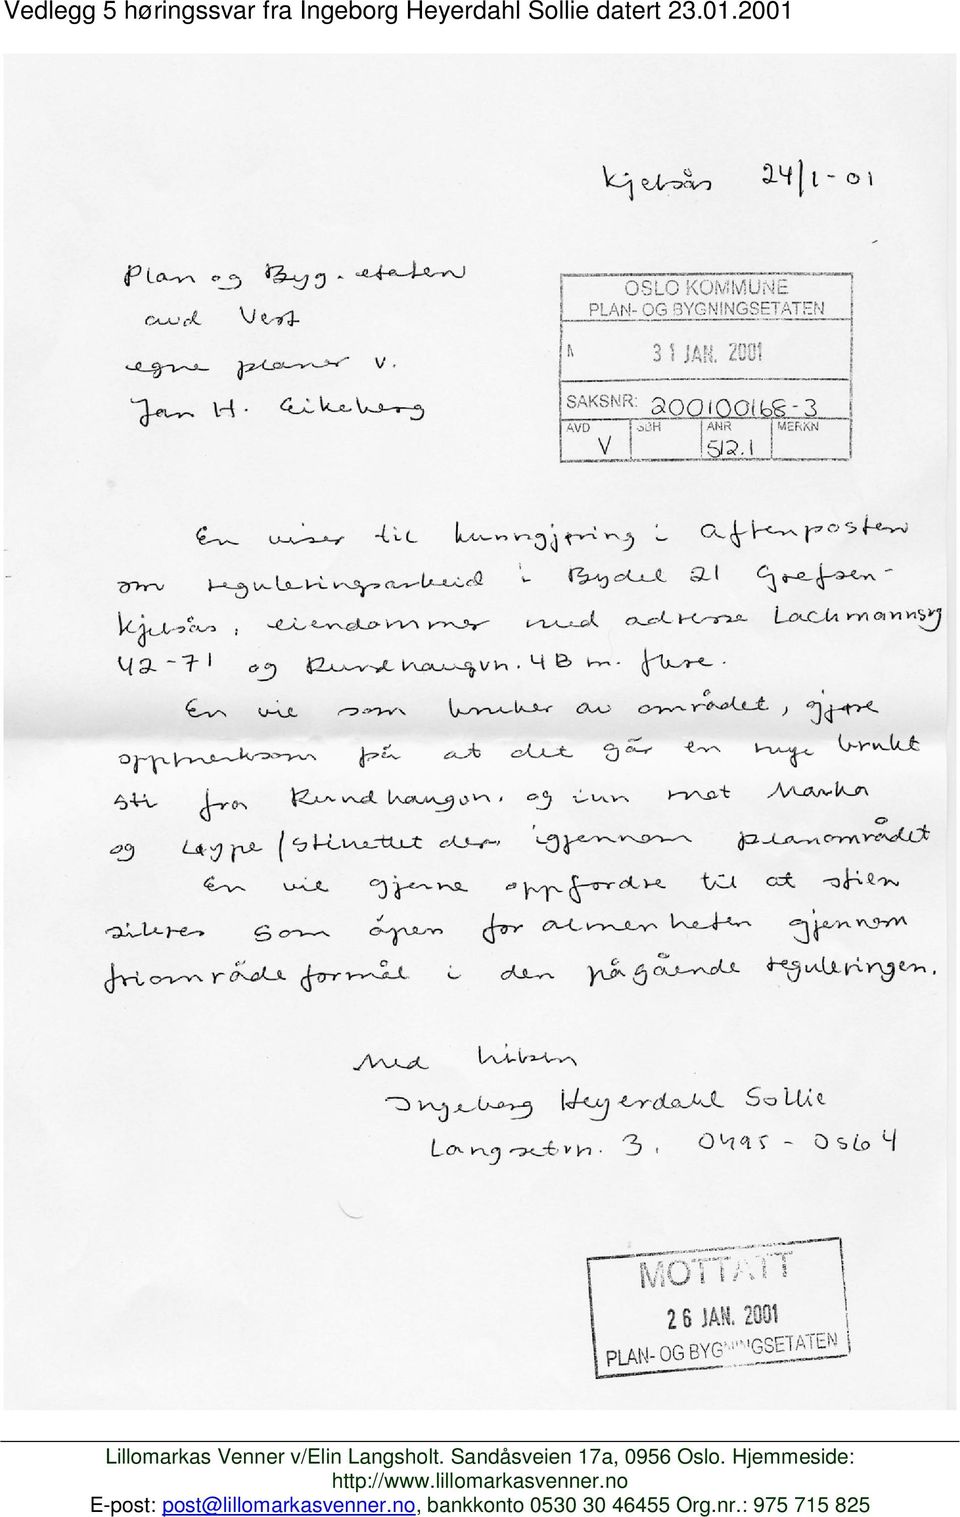 Vedlegg 5 høringssvar fra Ingeborg Heyerdahl Sollie datert 23.01.2001
Kjelsås 24/1-01
Plan og Byg.-etaten
avd Vest
egne planer v.
Jan H. Eikeberg
OSLO KOMMUNE
PLAN- OG BYGNINGSETATEN
31 JAN. 2001
SAKSNR: 200100168-3
AVD SBH ANR MERKN
V 512.1
En viser til kunngjøring i Aftenposten
om reguleringsarbeid i Bydel 21 Grefsen-
Kjelsås, eiendommer med adresse Lachmannsvg
42-71 og Rundhaugvn. 4B m. flere.
En vil som bruker av området, gjøre
oppmerksom på at det går en mye brukt
sti fra Rundhaugvn. og inn mot Marka
og løype/stinettet der, igjennom planområdet
En vil gjerne oppfordre til at stien
sikres som åpen for almenheten gjennom
friområdeformål i den pågående reguleringen.
Med hilsen
Ingeborg Heyerdahl Sollie
Langsetvn. 3, 0495 - Oslo 4
MOTTATT
26 JAN. 2001
PLAN- OG BYGNINGSETATEN
Lillomarkas Venner v/Elin Langsholt. Sandåsveien 17a, 0956 Oslo. Hjemmeside:
http://www.lillomarkasvenner.no
E-post: post@lillomarkasvenner.no, bankkonto 0530 30 46455 Org.nr.: 975 715 825